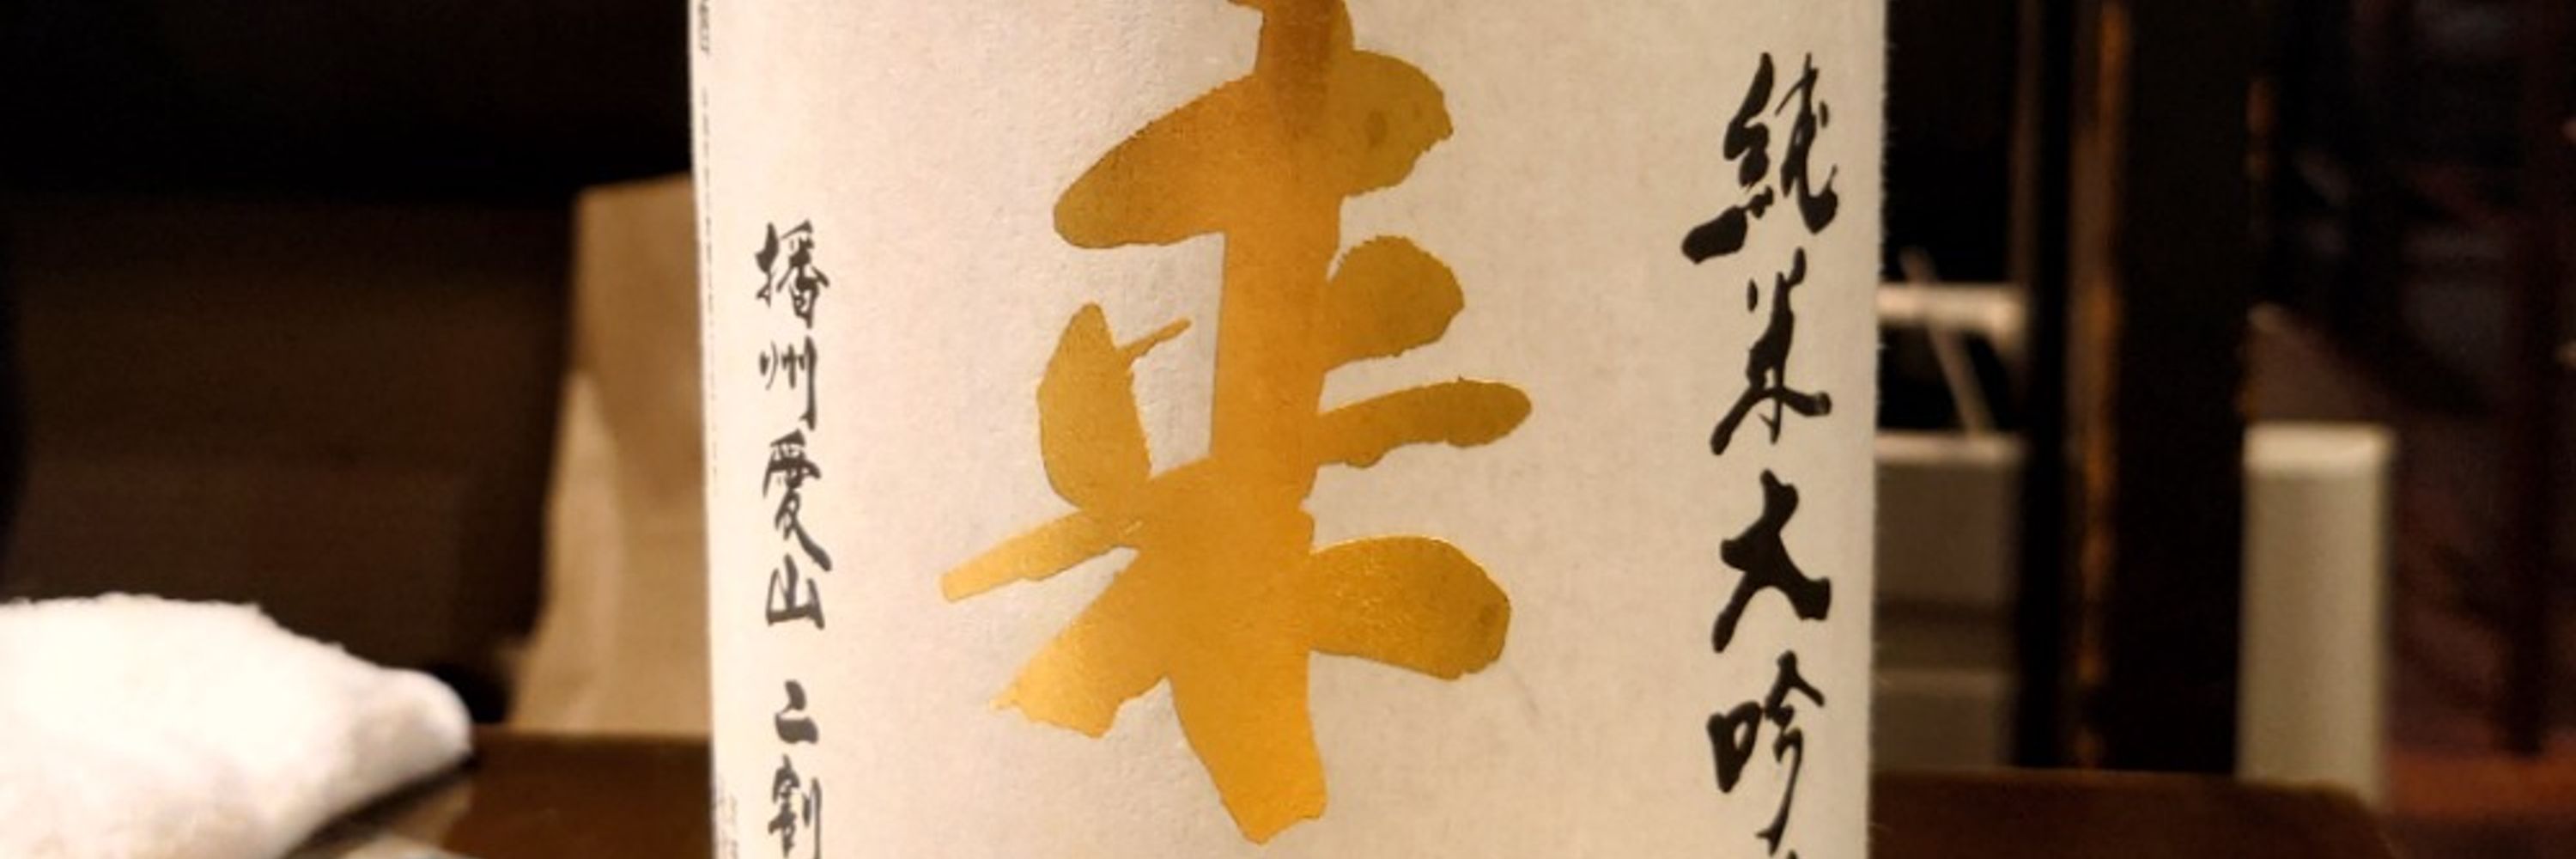 純米大吟
来
播州愛山 二割